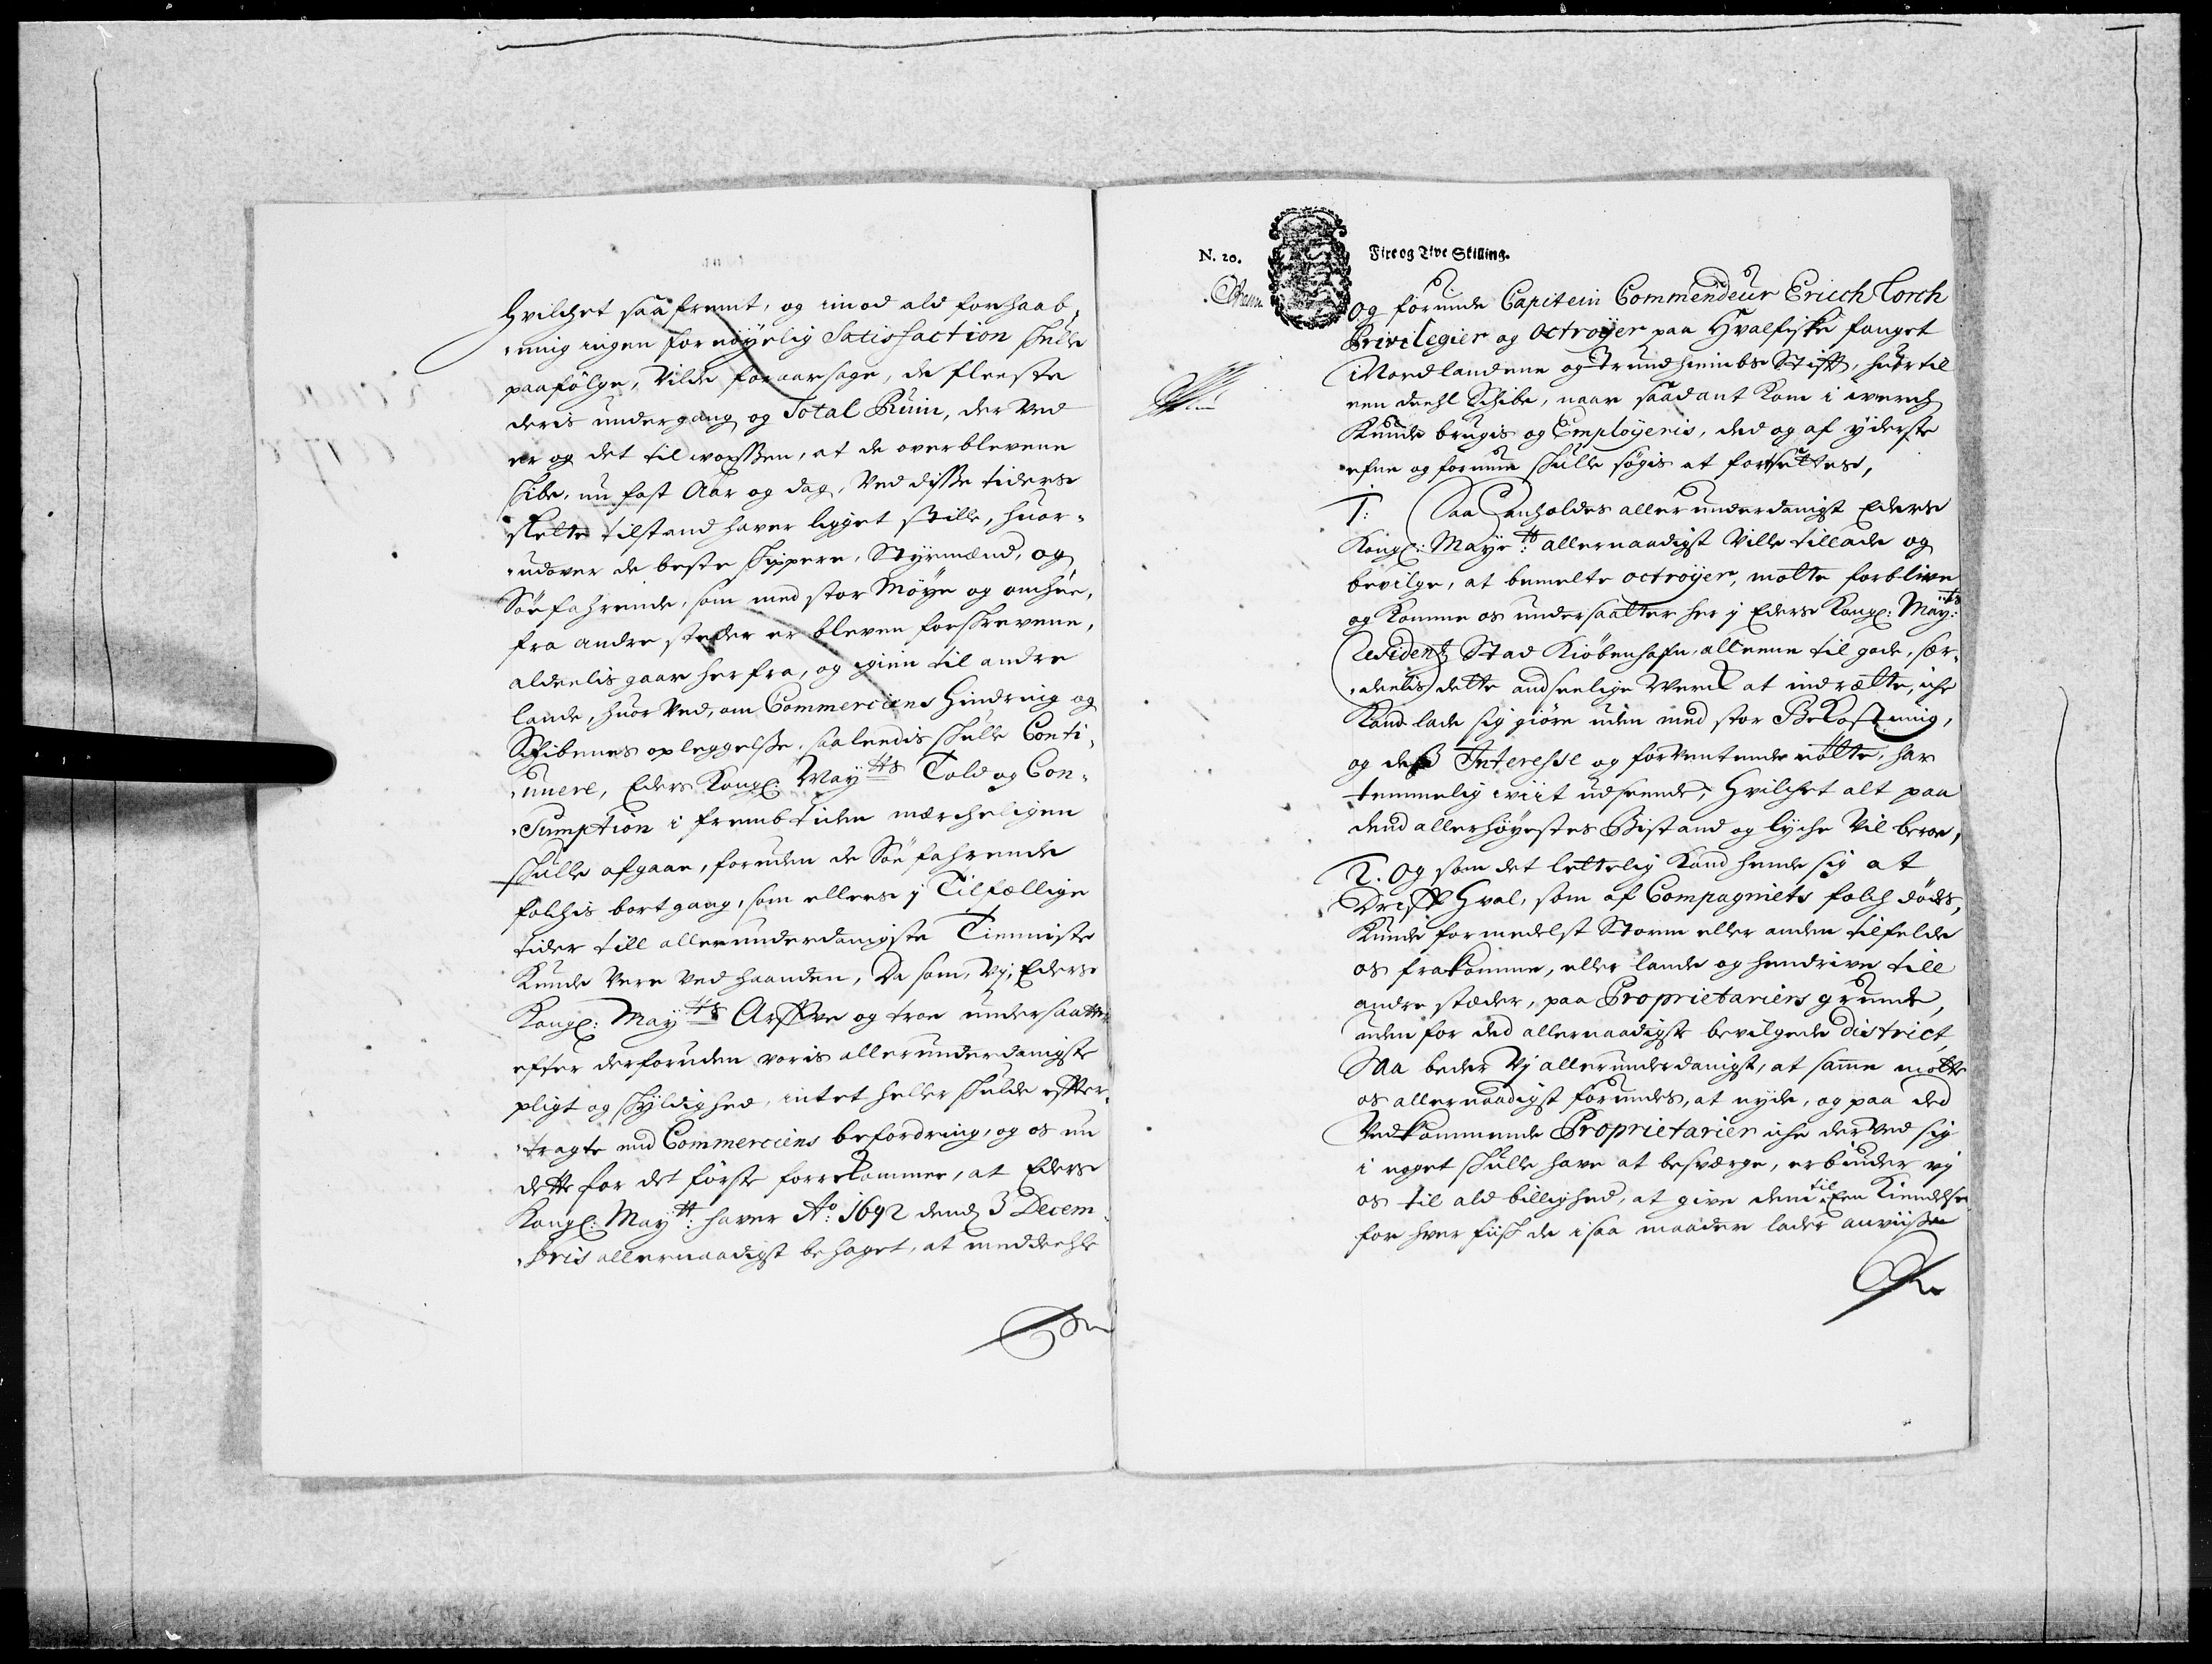 Hvilchet saa fremt, og imod ald forhaab,
ning ingen fornøyelig Satisfaction skulle
paafølge, Vilde foraarsage, de fleeste
deris undergang og Total Ruin, der Ved
er og det til woxssen, at de overblevene
skibe, nu fast Aar og dag, Ved disse tiders
slette tilstand haver ligget stille, huor,
udover de beste skippere, Styrmænd, og
Söefahrende, som med stor Møye og omhue,
fra andre steder er bleven forskrevene,
aldeelis gaar herfra, og igien til andre
lande, huor Ved, om Commerciens Hindring og
Skibenes opleggelsse, saaleedis skulle Conti,
nuere, Eders Kongl: Maytts Told og Con,
Sumption i frembtiden mærcheligen
skulle afgaae, foruden de Söefahrende
folchis bortgang, som ellers j Tilfællige
tider till allerunderdanigste Tienniste
Kunde Vere Ved haanden, Da som, Vj, Eders
Kongl: Maytts Arffve og troe undersaatter
efter derforuden voris allerunderdanigste
pligt og skyldighed, intet heller skulde effter,
tragte end Commerciens befordring, og os nu
dette for det første forrekommer, at Eders
Kongl: Maytt: haver Ao: 1692 dend 3 Decem,
bris allernaadigst behaget, at meddeehle
N. 20.
Fire og Tive Skilling.
og forunde Capitein Commendeur Eriech Lorch
Privilegier og Octroÿer paa Hvalfiske fanget
i Nordlandene og Trundhiembs Stifft, huor til
een deehl Skibe, naar saadant Kom i werch
Kunde brugis og Employeris, ded og af yderste
efne og formue skulle søgis at fortsettes,
1: Saa anholdes allerunderdanigst Eders
Kongl: Maytt: allernaadigst Ville tillade og
bevilge, at bemelte octroÿer, motte forblive
og Komme os undersaatter her j Eders Kongl: Maytts:
Residentz Stad Kiøbenhafn, alleene til gode, sær,
deelis dette andseelige Werck at indrætte, iche
Kand lade sig giøre uden med stor Bekostning,
og deß Interesse og forventende nötte, har
temmelig wiit udseende, Hvilchet alt paa
dend allerhøyestes Bistand og lyche Vil beroe,
2. Og som det lettelig Kand hende sig at
Driff Hval, som af Compagniets folch dödes,
Kunde formedelst Storm eller anden tilfelde
os frakomme, eller lande og hendrive till
andre stæder, paa Proprietariers grunde,
uden for ded allernaadigste bevilgede district,
Saa beder Vj allerunderdanigst, at samme motte
os allernaadigst forundes, at nyde, og paa ded
Vedkommende Proprietarier iche derved sig
i noget skulle have at besværge, erbinder vj
os til ald billighed, at give dem til Een Kiendelse
for hver fisk de i saa maader lader anviisse